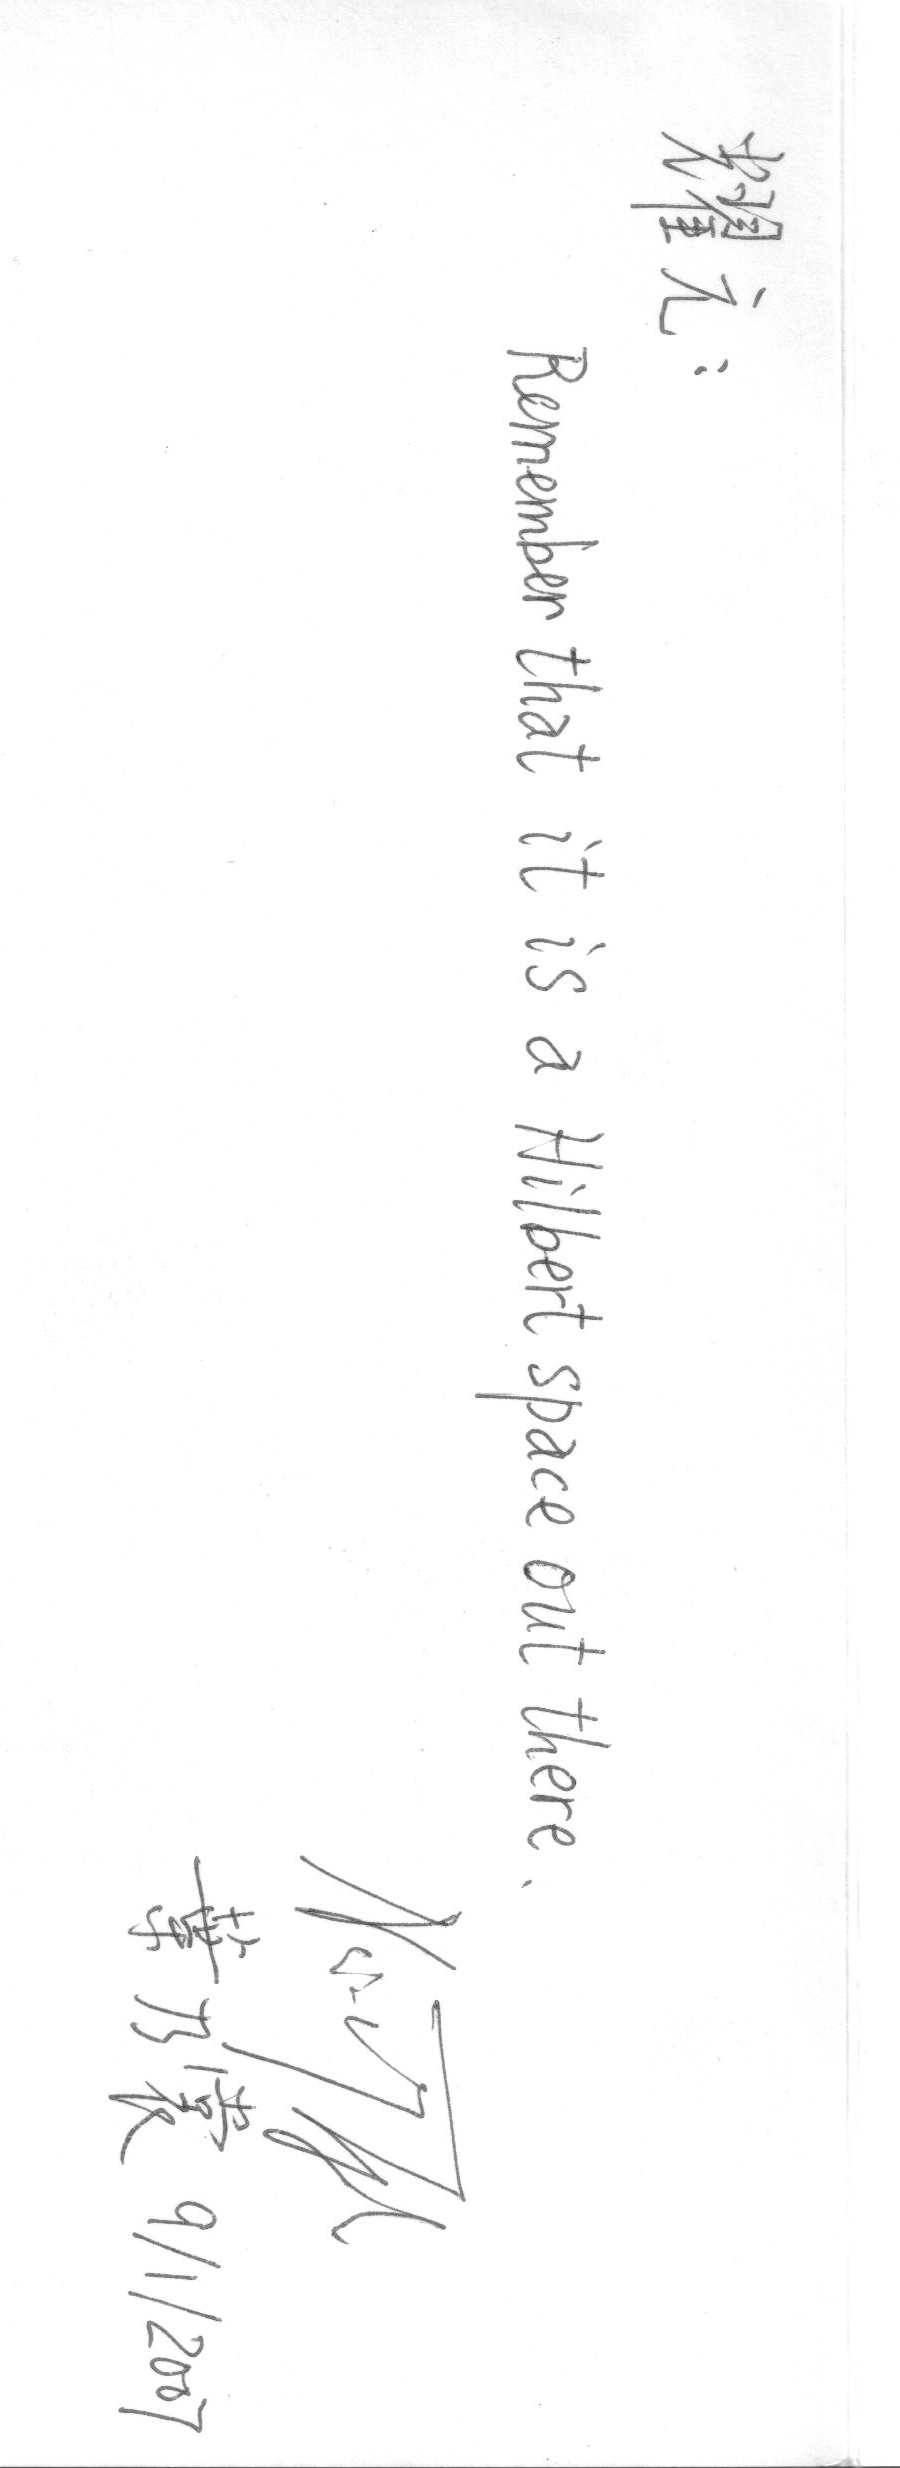 耀元：
Remember that it is a Hilbert space out there.
葉乃裳 9/1/2007